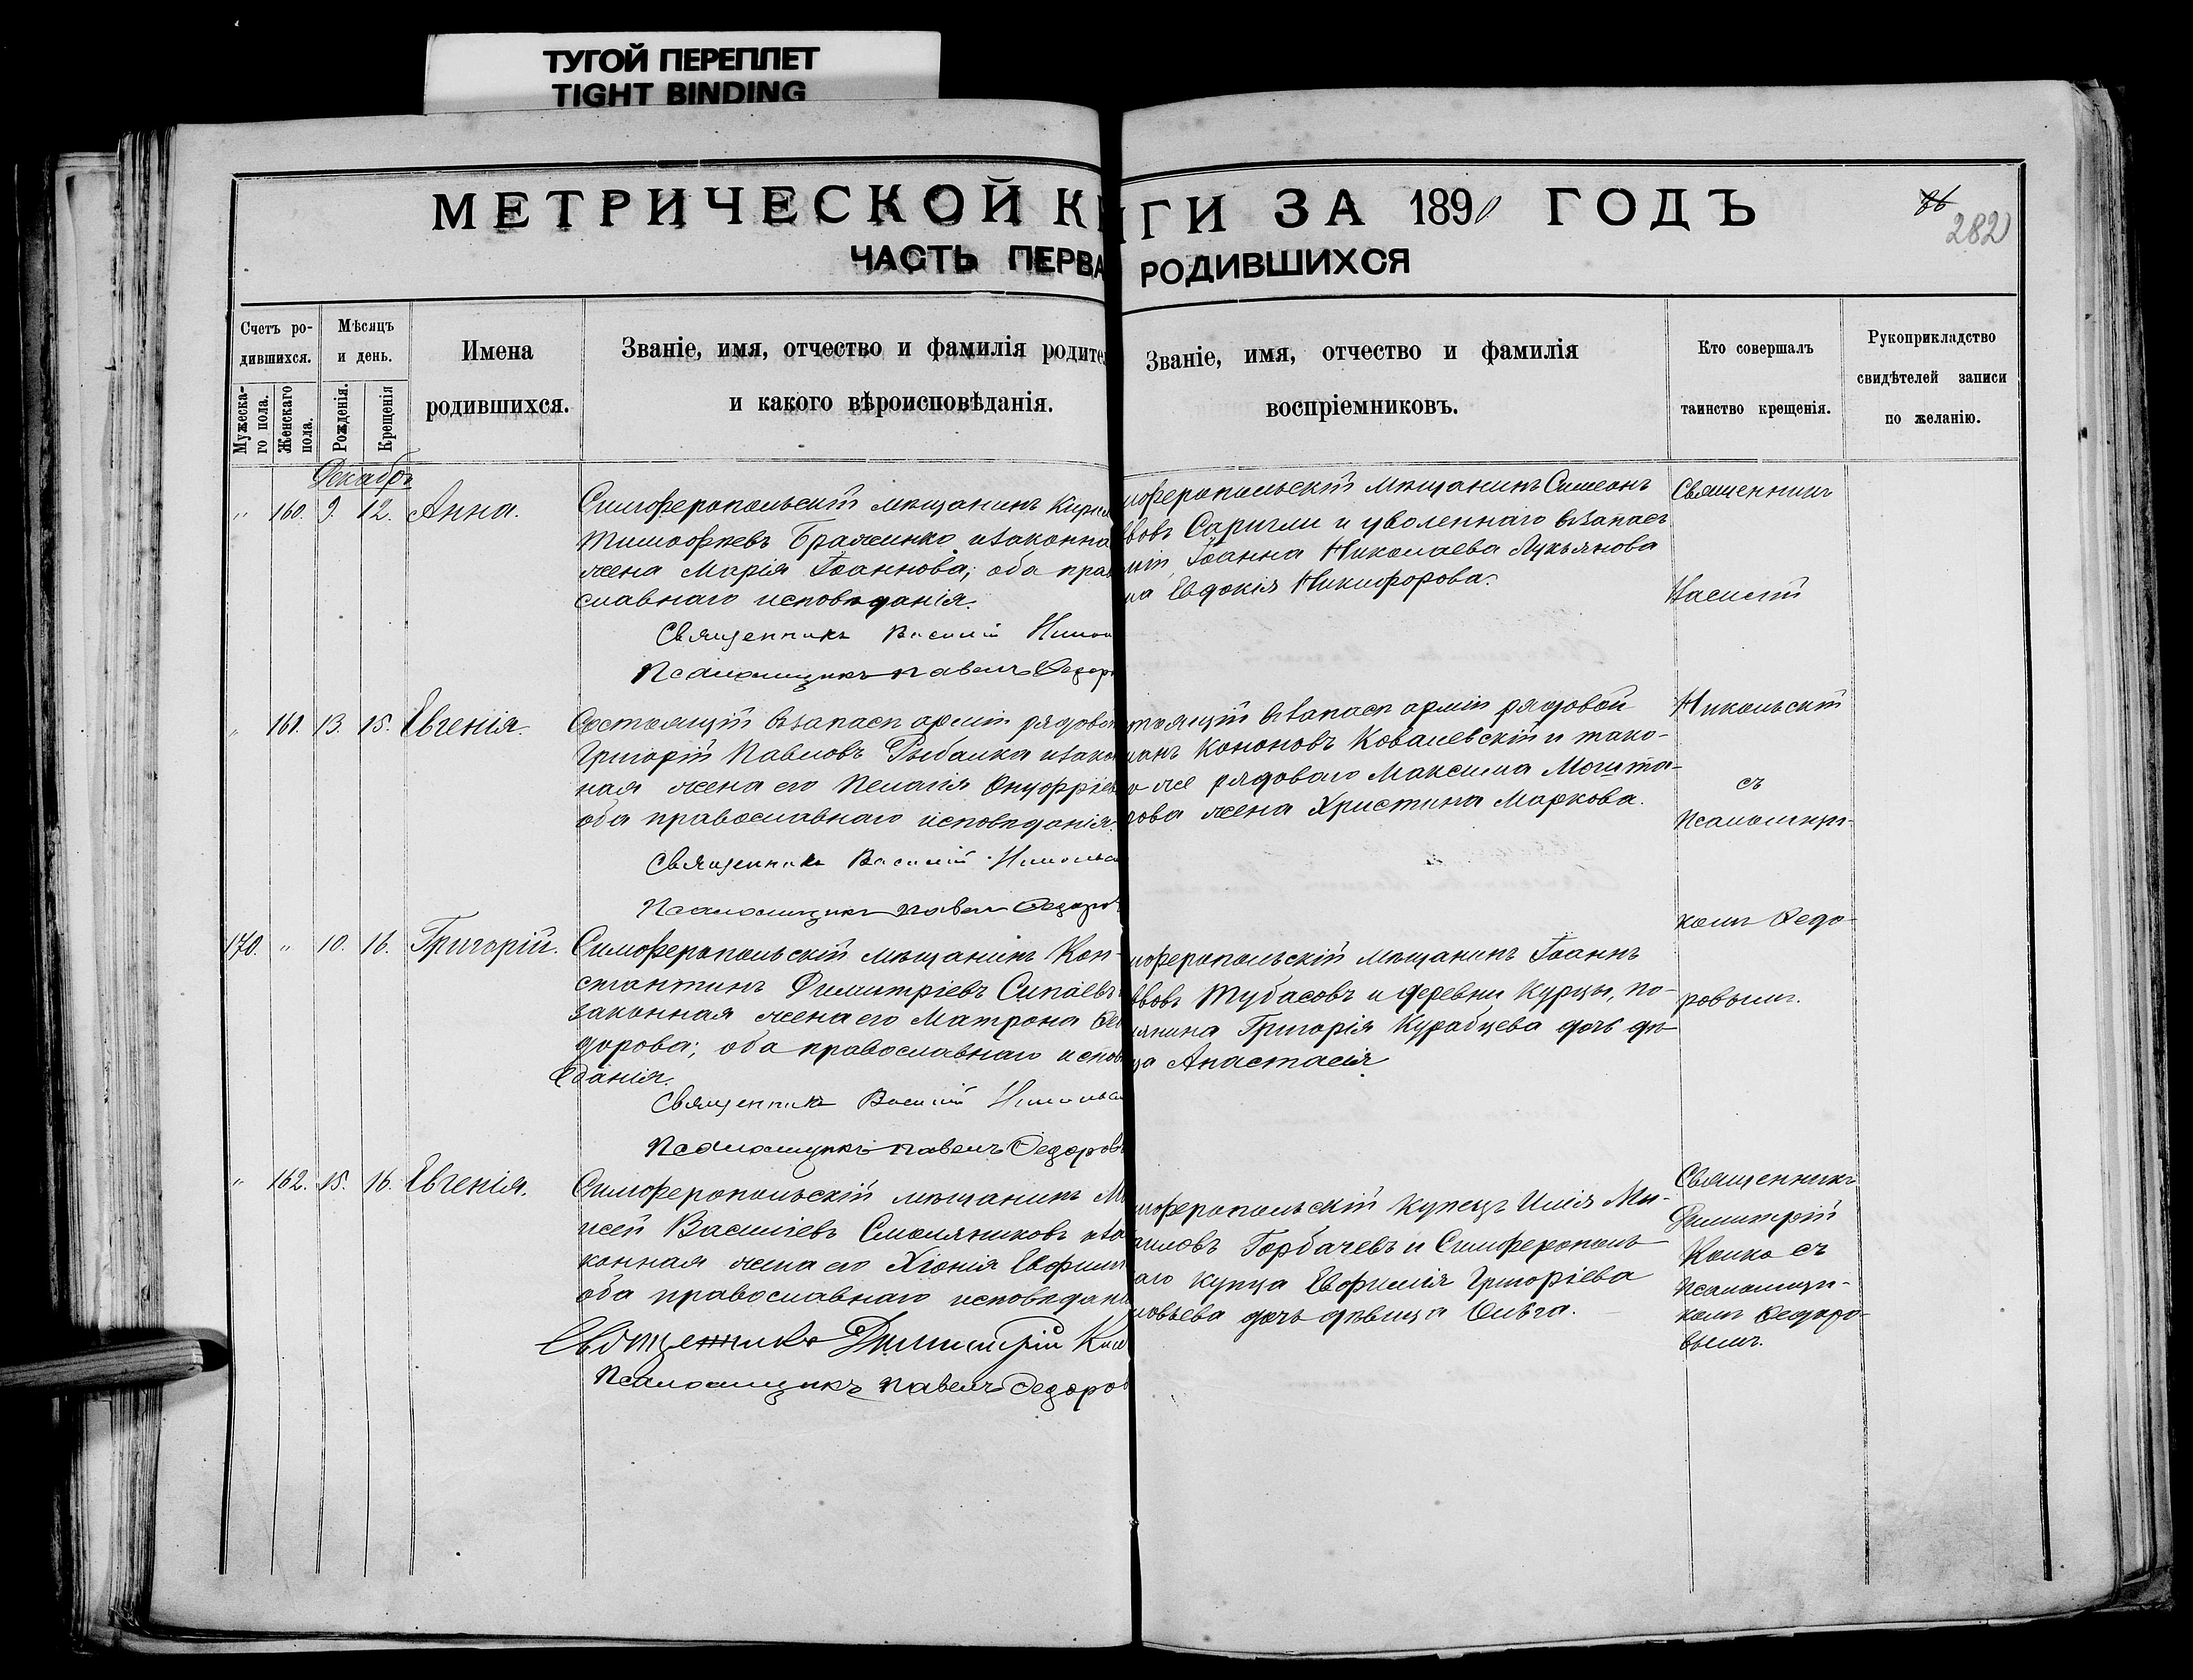 ТУГОЙ ПЕРЕПЛЕТ
TIGHT BINDING
МЕТРИЧЕСКОЙ К
ГИ ЗА 1890 ГОДЪ
86
282
ЧАСТЬ ПЕРВА
РОДИВШИХСЯ
Счетъ ро-
дившихся.
Мужеска-
го пола.
Женскаго
пола.
Мѣсяцъ
и день.
Рожденія.
Крещенія
Имена
родившихся.
Званіе, имя, отчество и фамилія родите
и какого вѣроисповѣданія.
Званіе, имя, отчество и фамилія
воспріемниковъ.
Кто совершалъ
таинство крещенія.
Рукоприкладство
свидѣтелей записи
по желанію.
Декабр
" 160. 9. 12. Анна.
Симферопольскій мѣщанинъ Кирил
Тимофеевъ Браженко и законна
жена Марія Іоаннова; оба прав
славнаго исповѣданія.
Священникъ Василій Никол
Псаломщикъ Павелъ Федор
моферопольскій мѣщанинъ Симеонъ
вовъ Саригли и уволеннаго въ запасъ
міи Іоанна Николаева Лукьянова
на Евдокія Никифорова.
Священникъ
Василій
" 161. 13. 15. Евгенія.
Состоящій въ запасѣ арміи рядово
Григорій Павловъ Рыбалка и зако
ная жена его Пелагія Онуфріев
оба православнаго исповѣданія.
Священникъ Василій Никольс
Псаломщикъ Павелъ Федоров
тоящій въ запасѣ арміи рядовой
манъ Кононовъ Ковалевскій и тако-
о же рядоваго Максима Мошта-
рова жена Христина Маркова.
Никольскій
съ
Псаломщи-
комъ Федо-
ровымъ.
170. " 10. 16. Григорій.
Симферопольскій мѣщанинъ Кон-
стантинъ Димитріевъ Сипаевъ
законная жена его Матрона Ѳе
дорова; оба православнаго испов
ѣданія.
Священникъ Василій Никольс
Псаломщикъ Павелъ Федоров
моферопольскій мѣщанинъ Іоаннъ
вовъ Тубасовъ и деревни Курцы, по-
лянина Григорія Курабцева дочь дѣ-
ца Анастасія
" 162. 15. 16. Евгенія.
Симферопольскій мѣщанинъ М
исей Васильевъ Смоляниковъ и за
конная жена его Хіонія Евфими
оба православнаго исповѣдані
Священникъ Димитрій Кой
Псаломщикъ Павелъ Федоров
моферопольскій купецъ Илія Ми-
аиловъ Горбачевъ и Симферополь
аго купца Евфимія Григоріева
ловьева дочь дѣвица Ольга.
Священникъ
Димитрій
Койко съ
псаломщи-
комъ Федоро-
вымъ.